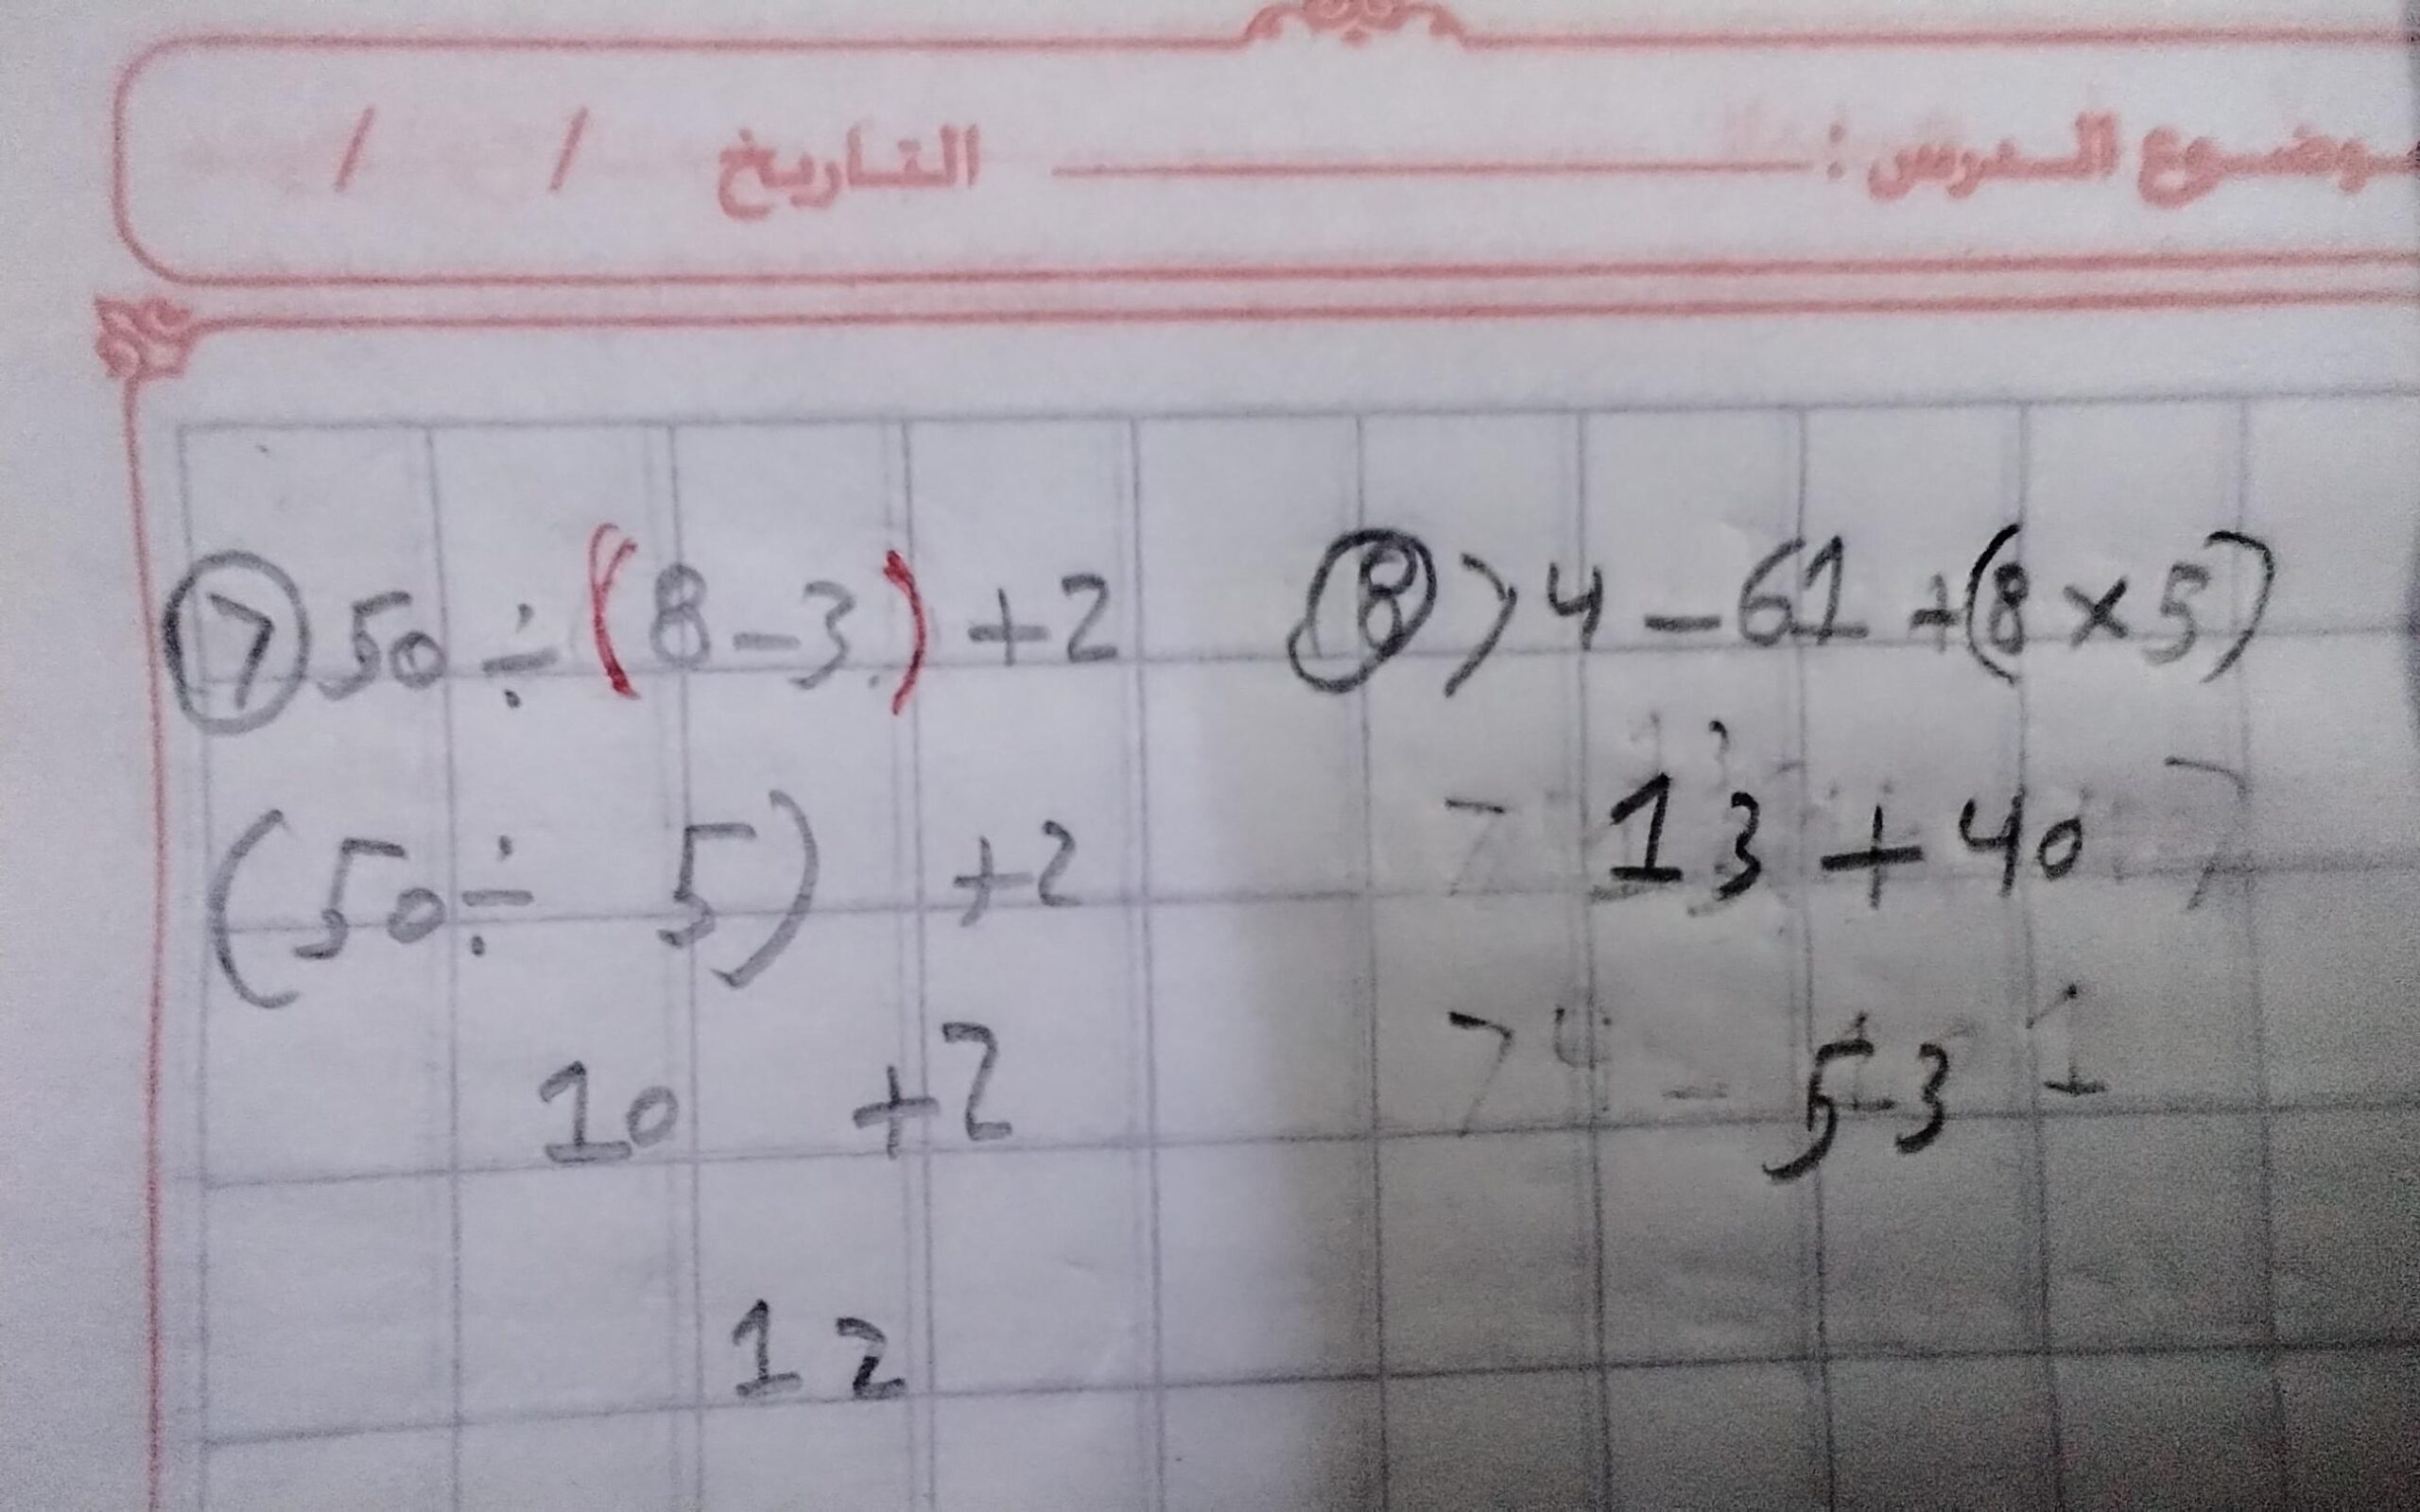 موضوع الدرس : التاريخ / /
⑦ 50 ÷ (8 - 3) + 2
(50 ÷ 5) + 2
10 + 2
12
⑧ 74 - 61 + (8 × 5)
13 + 40
53